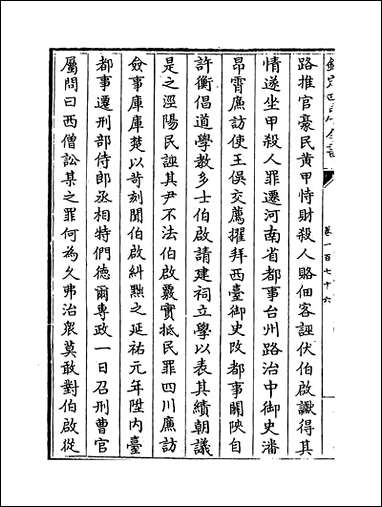 卷一百七十六
路推官豪民黃甲恃財殺人賂佃客誣伏伯啟讞得其
情遂坐甲殺人罪遷河南省都事台州路治中御史潘
昂霄廉訪使王俁交薦擢拜西臺御史改都事關陝自
許衡倡道學教多士伯啟請建祠立學以表其績朝議
是之涇陽民誣其尹不法伯啟覈實抵民罪四川廉訪
僉事庫庫楚以苛刻聞伯啟糾黜之延祐元年陞内臺
都事遷刑部侍郎丞相特們德爾專政一日召刑曹官
屬問曰西僧訟某之罪何為久弗治眾莫敢對伯啟從